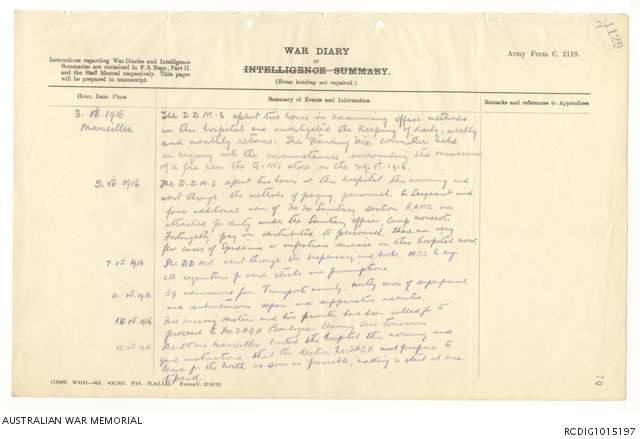 WAR DIARY
or
INTELLIGENCE SUMMARY.
(Erase heading not required.)
Army Form C. 2118.
Instructions regarding War Diaries and Intelligence
Summaries are contained in F. S. Regs., Part II.
and the Staff Manual respectively. Title pages
will be prepared in manuscript.
Hour, Date, Place
Summary of Events and Information
Remarks and references to Appendices
3. VII. 1916 The D.D.M.S spent two hours in examining office methods
Marseilles. in this hospital and investigated the keeping of daily, weekly
and monthly returns. The Standing Fire Committee held
an enquiry into the circumstances surrounding the occurrence
of a fire near the Q.M's store on the 29.VI.1916.
5. VII. 1916 The D.D.M.S spent two hours at this hospital this morning and
went through the methods of paying personnel. A Sergeant and
four additional men of No 20 Sanitary Section RAMC are
attached for duty under the Sanitary Officer, Camp
Fortnightly pay was distributed to personnel. There are very
few cases of Epidemic or infectious disease in this hospital now.
7. VII. 1916 The D.D.M.S went through the dispensary and books
all requisitions for stocks and
39 admissions for Transports mainly. Mostly cases of superficial
and subcutaneous sepsis and suppurative
14. VII. 1916 nursing sisters and have been called for to
proceed to Boulogne, leaving here tomorrow
Marseilles visited the hospital this morning and
gave instructions that the Section prepare to
leave for the North as soon as possible, making a start at once
to pack.
(73989) W4141—463. 400,000. 9/14. H.&J.Ltd. Forms/C. 2118/10.
AUSTRALIAN WAR MEMORIAL
RCDIG1015197